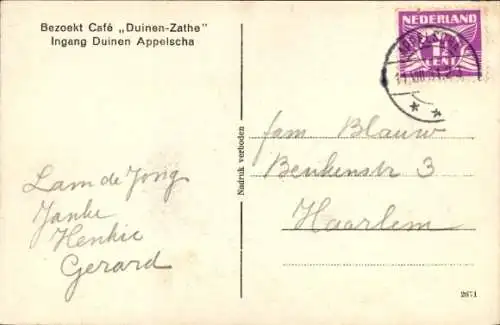 Bezoekt Café „Duinen-Zathe"
Ingang Duinen Appelscha
NEDERLAND
1½
CENT
Nadruk verboden
fam Blauw
Beukenstr 3
Haarlem
Lam de Jong
Janke
Henkie
Gerard
2671